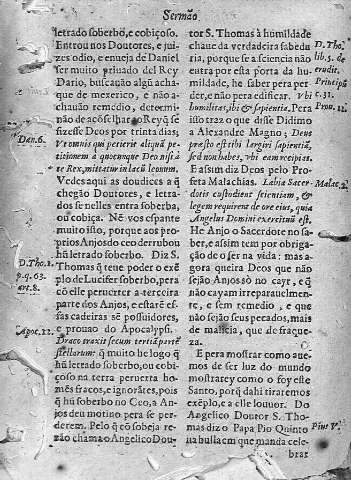 Sermão
letrado soberbo, e cobiçoso.
Entrou nos Doutores, e juizes
odio, e enueja de Daniel
ser muito priuado del Rey
Dario, buscarão algũ achaque
de o mexerico, e não a
achauão remedio, determinão
de acõselhar o Rey q̃ se
fizesse Deos por trinta dias;
Vt omnis qui petierit aliquã petitionem
à quocunque Deo nisi à
te Rex, mittatur in lacũ leonum.
Dan.6.
Vedes aqui as doudices a q̃
chegão Doutores, e letrados
se nelles entra soberba,
ou cobiça. Nẽ vos espante
muito isso, porque aos proprios
Anjos do ceo derrubou
hũ letrado soberbo. Diz S.
Thomas q̃ teue poder o exẽplo
de Lucifer soberbo, pera
cõ elle peruerter a terceira
parte dos Anjos, e estarẽ essas
cadeiras sẽ possuidores,
e prouao do Apocalypsi.
D.Tho.1.
p.q.63.
art.8.
Draco traxit secum tertiã partẽ
stellarum: q̃ muito he logo q̃
hũ letrado soberbo, ou cobiçoso
na terra peruerta homẽs
fracos, e ignorãtes, pois
q̃ hũ soberbo no Ceo, a Anjos
deu motino pera se perderem.
Pelo q̃ cõ sobeja rezão
chama o Angelico Doutor
Apoc.12.
S. Thomas à humildade
chaue da verdadeira sabeduria,
porque se a sciencia não
entra por esta porta da humildade,
he saber pera perder,
e não pera edificar. Vbi
humilitas, ibi & sapientia. Pera
isso traz o que disse Didimo
a Alexandre Magno; Deus
presto est tibi largiri sapientiã,
sed non habes, vbi eam recipias.
D. Tho.
lib.5. de
erudit.
Principũ
c.31.
Prou.11.
E assim diz Deos pelo Profeta
Malachias. Labia Sacerdotis
custodient scientiam, &
legem requirent de ore eius, quia
Angelus Domini exercituũ est.
Malac.2.
He Anjo o Sacerdote no saber,
e assim tem por obrigação
de o ser na vida: mas agora
queira Deos que não
sejão Anjos sò no cayr, e q̃
não cayam irreparauelmente,
e sem remedio, e que
não sejão seus pecados, mais
de malicia, que de fraqueza.
E pera mostrar como auemos
de ser luz do mundo
mostrarey como o foy este
Santo, porq̃ dahi tiraremos
exẽplo, e a elle louuor. Do
Angelico Doutor S. Thomas
diz o Papa Pio Quinto
na bulla em que manda cele-
Pius V.
brar